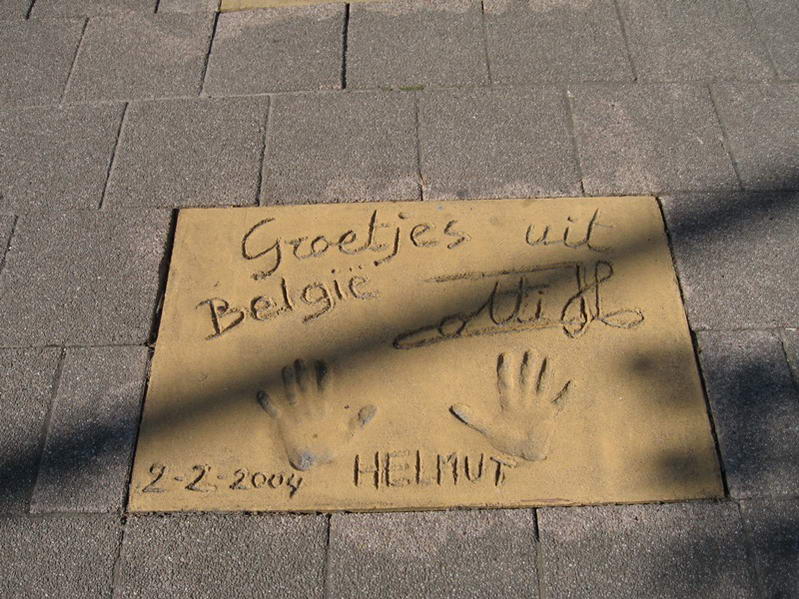 Groetjes uit
België
Lotti H
2-2-2004
HELMUT